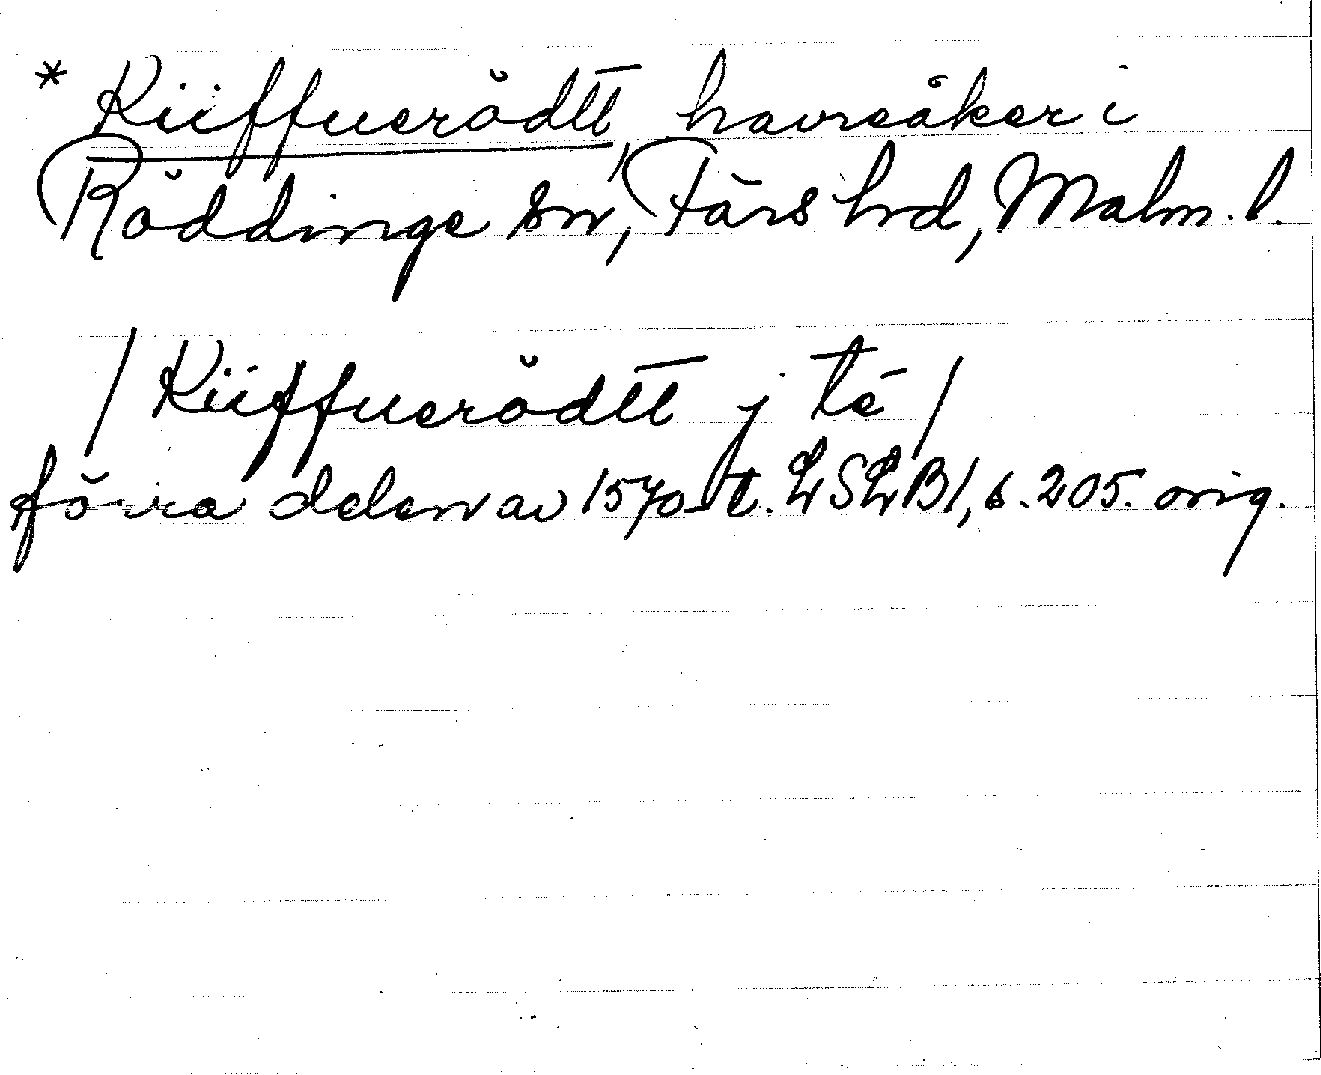 * Kiiffuerödtt, havreåker i
Röddinge sn, Färs hrd, Malm. l.
/ Kiiffuerödtt j té /
förra delen av 1570-t. LSLB1, s. 205. orig.